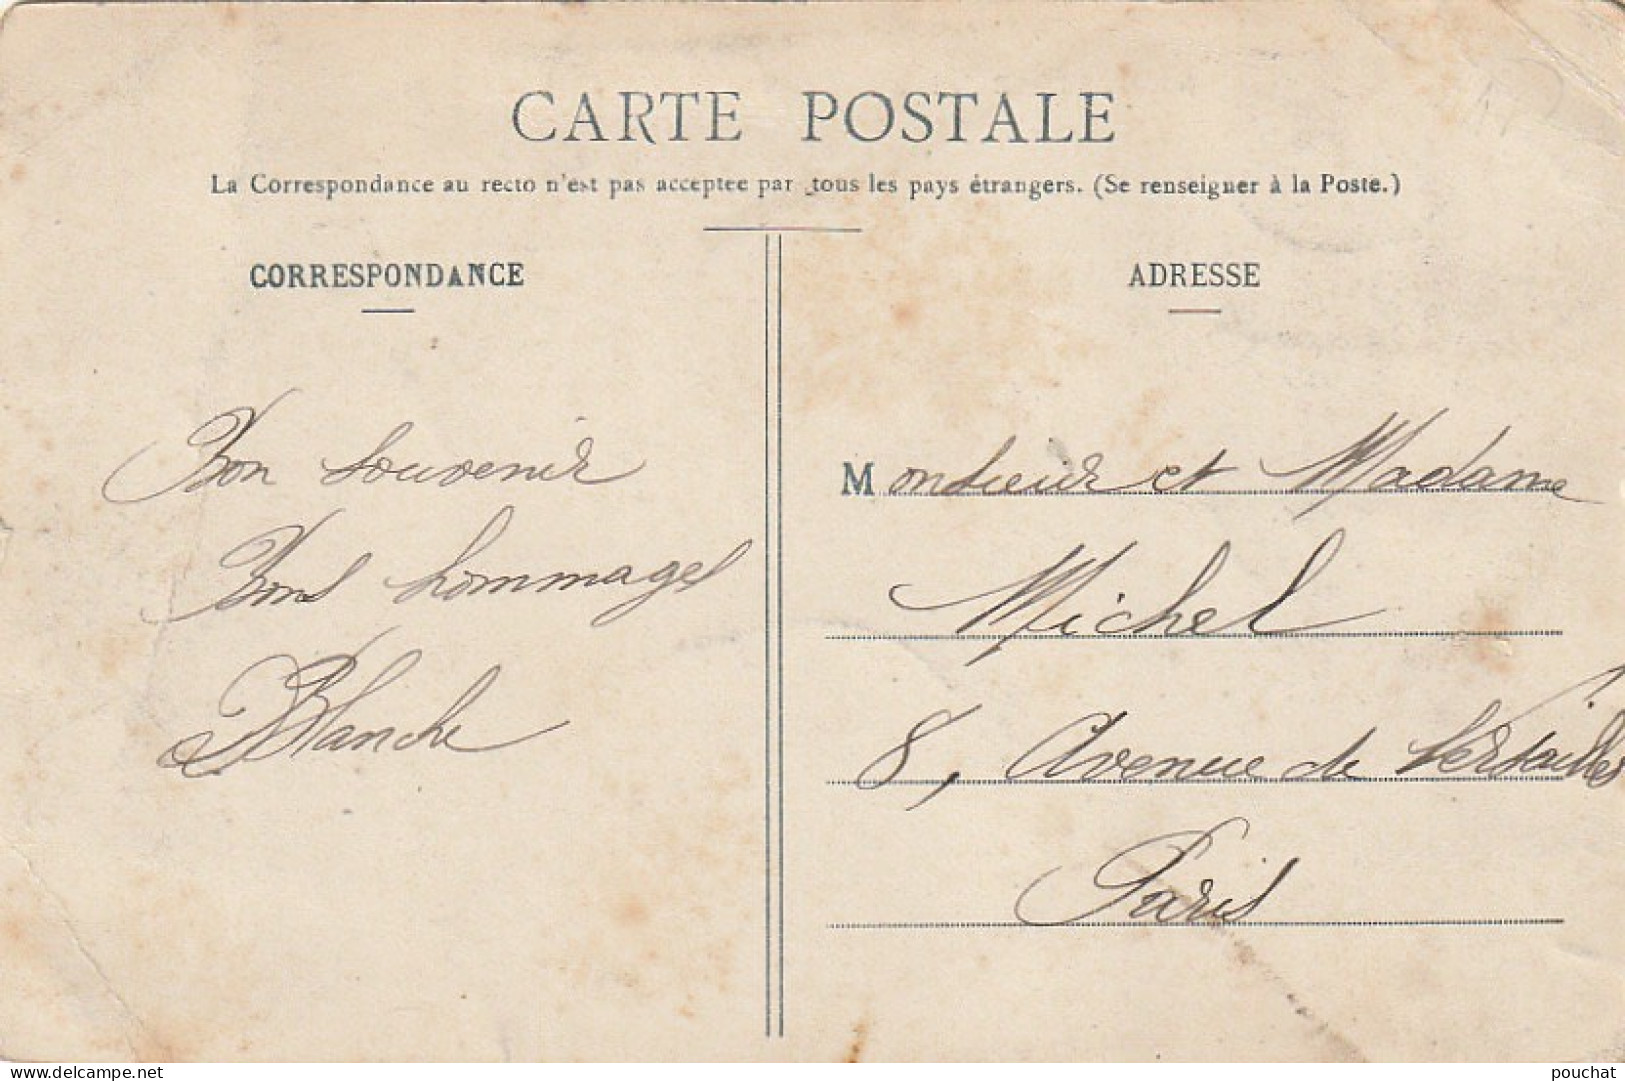 CARTE POSTALE
La Correspondance au recto n'est pas acceptee par tous les pays étrangers. (Se renseigner à la Poste.)
CORRESPONDANCE
Bon souvenir
Bons hommages
Blanche
ADRESSE
Monsieur et Madame
Michel
8, Avenue de Versailles
Paris
delcampe.net
pouchat